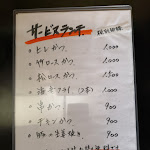 サービスランチ 税別価格
・ヒレかつ 1,000
・竹ロースかつ 1,000
・松ロースかつ 1,500
・海老フライ(2本) 1,000
・串かつ 900
・チキンかつ 900
・豚の生姜焼き 900